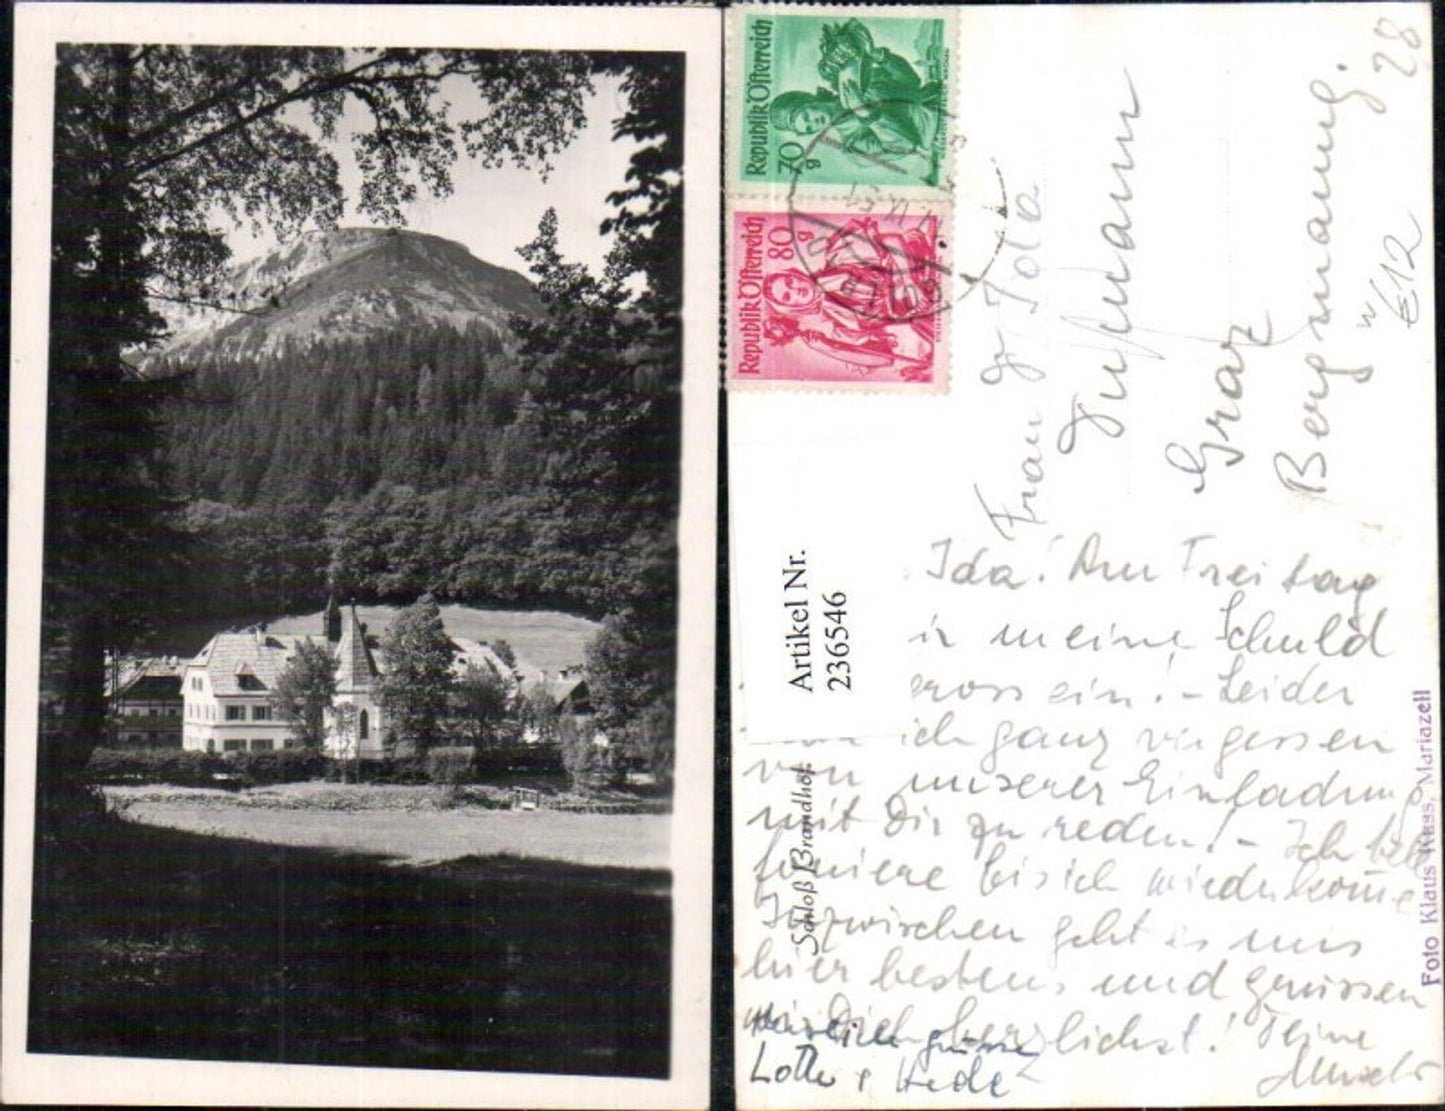 Republik Österreich
70 g
Republik Österreich
80 g
28
Frau
Graz
Bergmanng.
€12
Artikel Nr.
236546
Ida! Am Freitag
meine Schuld
ein! - Leider
ich ganz vergessen
von unserer Einladung
mit Dir zu reden! - Ich
bis ich wiederkomme
Inzwischen geht es uns
hier bestens und grüssen
herzlichst! Deine
Lotte
Schloß Brandhof.
Foto Klaus Kuss, Mariazell